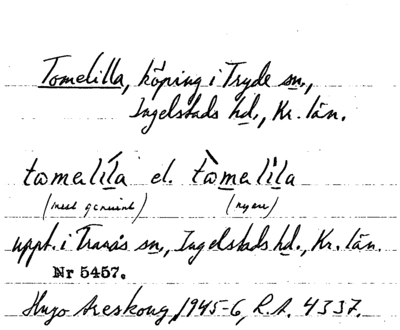 Tomelilla, köping i Tryde sn.,
Ingelstads hd., Kr. län.
tωmalíla el. tὼmalìla
(mest genuint) (nyare)
uppt. i Tranås sn., Ingelstads hd., Kr. län.
Nr 5457.
Hugo Areskoug, 1945-6, R.A. 4337.